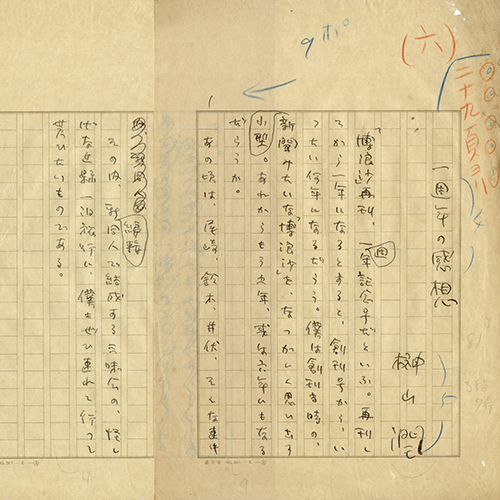 (六)
二十九頁ヨリ
9ポ
一周年の感想
榊山潤
「博浪沙」再刊、一周年記念号だといふ。再刊し
てから一年になるとすると、創刊号から、い
つたい何年になるだらう。僕は創刊当時の、
新聞みたいな「博浪沙」を、なつかしく思ひ出す
小型。あれからもう五年、或は六年にもなる
だらうか。
あの頃は、尾崎、鈴木、井伏、そんな連中
その内、新同人で結成する三味会の、怪し
げな近縣一泊旅行に、僕もぜひ連れて行つて
貰ひたいものである。